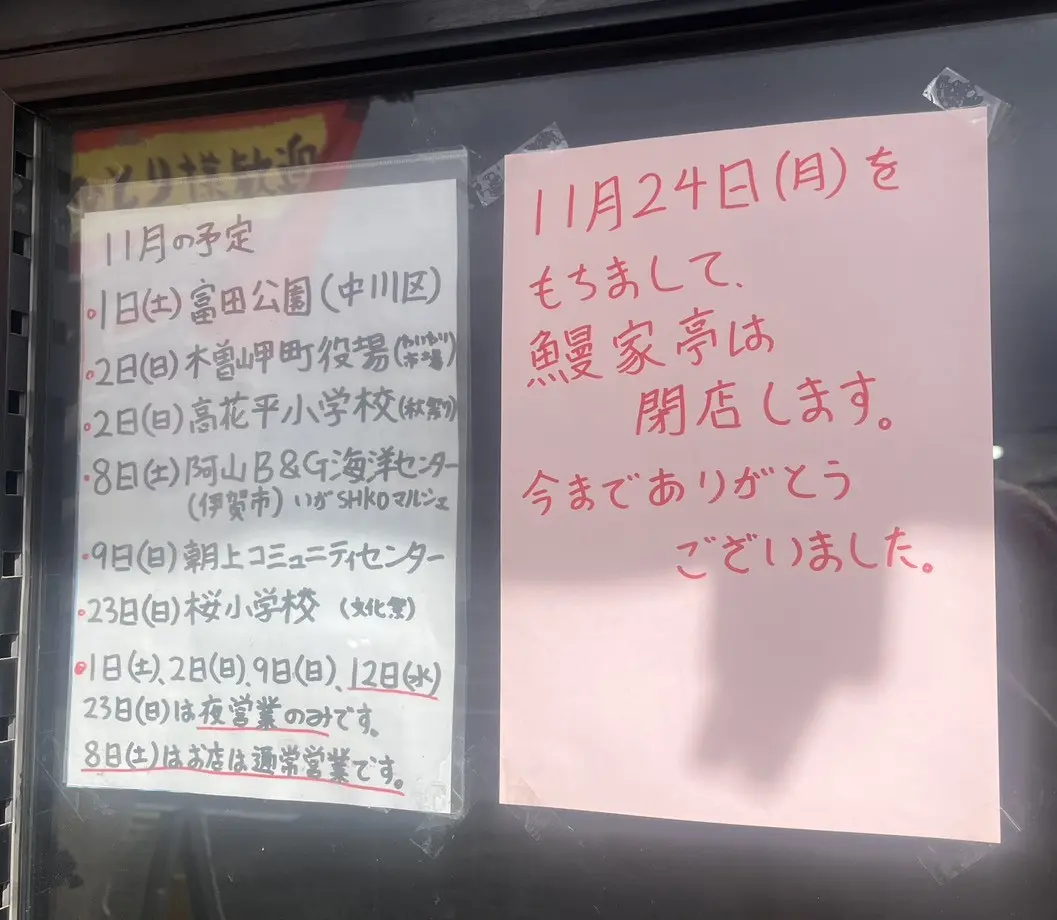 とり様歓迎
11月の予定
1日(土)富田公園(中川区)
2日(日)木曽岬町役場(わいわい市場)
2日(日)高花平小学校(秋祭り)
8日(土)阿山B&G海洋センター
(伊賀市)いがSHKOマルシェ
9日(日)朝上コミュニティセンター
23日(日)桜小学校 (文化祭)
1日(土)、2日(日)、9日(日)、12日(水)
23日(日)は夜営業のみです。
8日(土)はお店は通常営業です。
11月24日(月)を
もちまして、
鰻家亭は
閉店します。
今までありがとう
ございました。